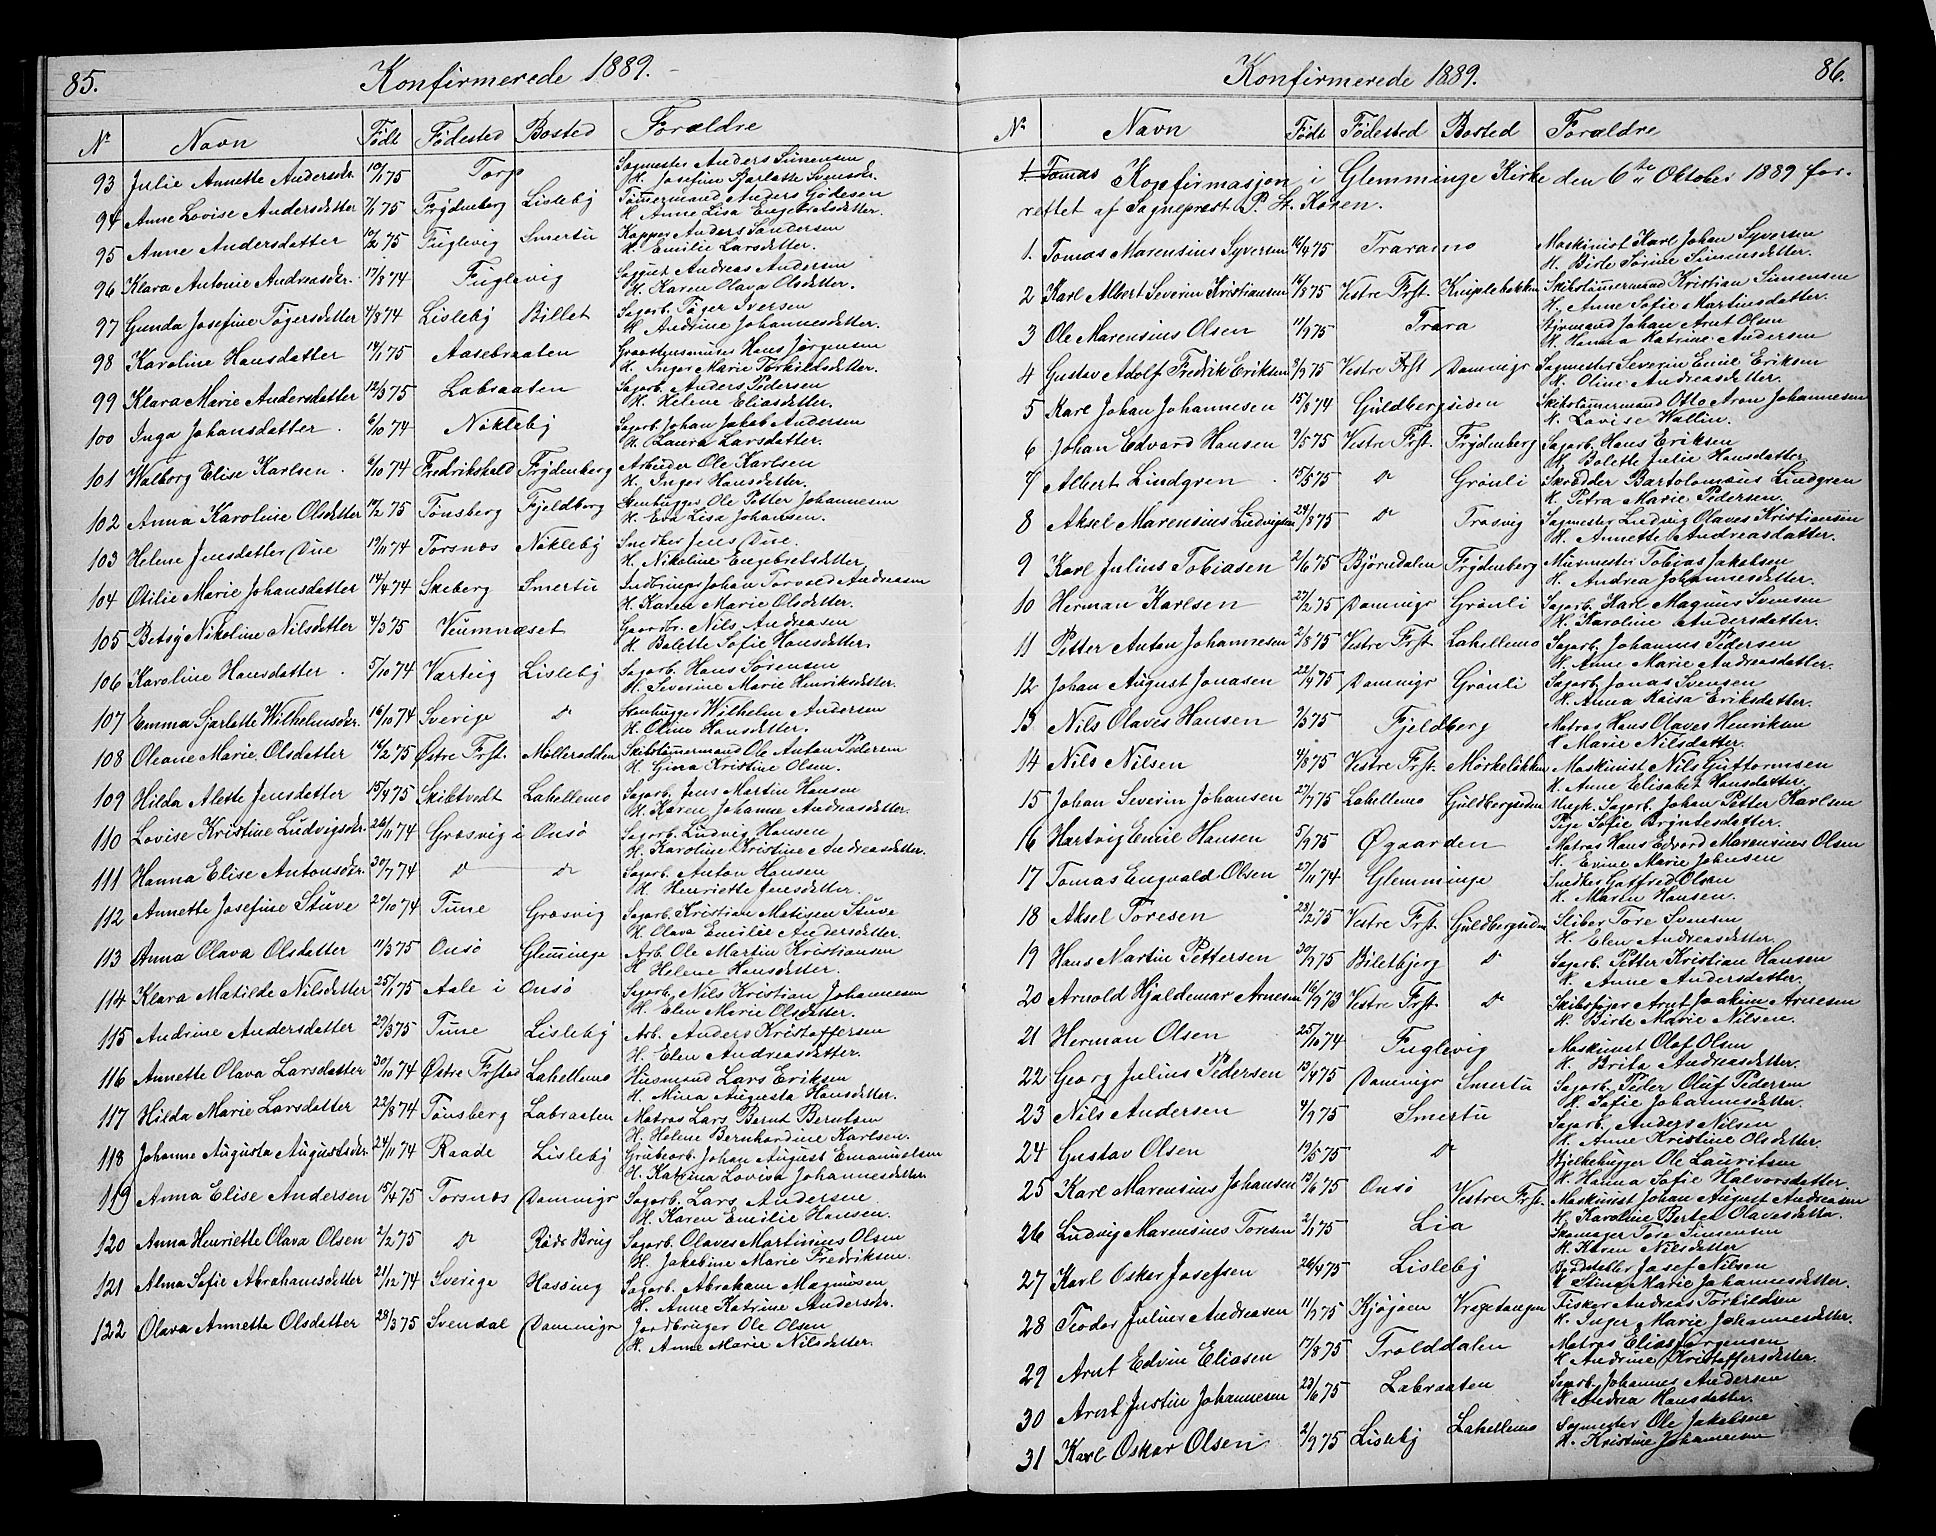 85.
Konfirmerede 1889.
Nr Navn Født Fødested Bosted Forældre
93 Julie Annette Andersdr. 19/1 75 Torp Sagmester Anders Simensen
H. Josefine Sjarlotte Svensdr.
94 Anne Lovise Andersdatter 7/1 75 Frydenberg Lisleby Tømmermand Anders Gødesen
H. Anne Lisa Engebretsdatter.
95 Anne Andersdatter 12/2 75 Fuglevig Smertu Kapper Anders Sandersen
H. Emilie Larsdetter.
96 Klara Antonie Andreasdr. 17/8 74 Fuglevig Andreas Andersen
H. Karen Olava Olsdetter.
97 Gunda Josefine Tøgersdetter 4/8 74 Lisleby Billet Sagarb. Tøger Iversen
H. Andrine Johannesdetter.
98 Karoline Hansdatter 14/1 75 Aasebraaten Hans Jørgensen
H. Inger Marie Torkildsdetter.
99 Klara Marie Andersdatter 12/3 75 Labraaten Sagarb. Anders Pedersen
H. Helene Eliasdetter.
100 Inga Johansdatter. 6/10 74 Nøkleby Sagarb. Johan Jakob Andersen
H. Laura Larsdatter.
101 Walborg Elise Karlsen. 6/10 74 Fredrikshald Frydenberg Arbeider Ole Karlsen
H. Inger Hansdetter.
102 Anna Karoline Olsdetter 17/2 75 Tønsberg Fjeldberg Stenhugger Ole Petter Johannesen
H. Eva Lisa Johansen.
103 Helene Jensdatter Due 19/11 74 Torsnæs Nøkleby Snedker Jens Due.
H. Nikoline Engebretsdetter
104 Otilie Marie Johansdatter 14/4 74 Skeberg Smertu Johan Torvald Andreasen
H. Karen Marie Olsdetter.
105 Betsy Nikoline Nilsdetter 4/3 75 Veumnæset Gaardbr. Nils Andreasen
H. Bolette Sofie Hansdetter
106 Karoline Hansdatter. 5/10 74 Varteig Lisleby Sagarb. Hans Sørensen
H. Severine Marie Henriksdetter.
107 Emma Sjarlotte Wilhelmsdr. 16/10 74 Sverige do Stenhugger Wilhelm Andersen
H. Oline Hansdetter.
108 Oleane Marie Olsdetter 14/2 75 Østre Frst. Mølleradden Skibstømmermand Ole Anton Pedersen
H. Gina Kristine Olsen.
109 Hilda Alette Jensdatter 15/4 75 Skibtvedt Lahellemo Sagarb. Jens Martin Hansen
H. Karen Johanne Andreasdetter.
110 Lovise Kristine Ludvigsdr. 26/11 74 Græsvig i Onsø Sagarb. Ludvig Hansen
H. Karoline Kristine Andreasdetter.
111 Hanna Elise Antonsdr. 30/7 74 do do Sagarb. Anton Hansen
H. Henriette Jensdetter.
112 Annette Josefine Stuve 27/10 74 Tune Græsvig Sagarb. Kristian Matisen Stuve
H. Olava Emilie Andersdetter.
113 Anna Olava Olsdetter 11/3 75 Onsø Glemminge Arb. Ole Martin Kristiansen
H. Helene Hansdetter.
114 Klara Matilde Nilsdetter 25/1 75 Aale i Onsø Sagarb. Nils Kristian Johannesen
H. Elen Marie Olsdetter.
115 Andrine Andersdatter 29/3 75 Tune Lisleby Arb. Anders Kristoffersen
H. Elen Andreasdetter.
116 Annette Olava Larsdatter 30/10 74 Østre Frstad Lahellemo Husmand Lars Eriksen
H. Mina Augusta Hansdetter.
117 Hilda Marie Larsdatter 22/8 74 Tønsberg Labraaten Matros Lars Bernt Berntsen
H. Helene Bernhardine Karlsen.
118 Johanne Augusta Augustsdr. 24/11 74 Raade Lisleby Grubearb. Johan August Emanuelsen
H. Katrina Lovisa Johannesdetter
119 Anna Elise Andersen 15/4 75 Torsnæs Damnigr Sagarb. Lars Andersen
H. Karen Emilie Hansen.
120 Anna Henriette Olava Olsen 2/2 75 do Røde Brug Sagarb. Olaves Martinius Olsen
H. Jakobine Marie Fredriksen.
121 Alma Sofie Abrahamsdetter 21/12 74 Sverige Hassing Sagarb. Abraham Magnusen
H. Anne Katrine Andersdr.
122 Olava Annette Olsdatter 23/3 75 Svendal Damnigr Jordbruger Ole Olsen
H. Anne Marie Nilsdetter.
86.
Konfirmerede 1889.
Nr Navn Født Fødested Bosted Forældre
1. Tomas Konfirmasjon i Glemminge Kirke den 6te Oktober 1889 for-
rettet af Sogneprest P. St. Koren.
1. Tomas Marensius Syversen 16/4 75 Traramo Maskinist Karl Johan Syversen
H. Birte Sørine Simensdetter.
2 Karl Albert Severin Kristiansen 16/8 75 Vestre Frst. Kniplebakken Skibstømmermand Kristian Simensen
H. Anne Sofie Martinsdatter.
3 Ole Marensius Olsen 11/9 75 Trara Styrmand Johan Arnt Olsen
H. Hanna Katrine Andersen
4 Gustav Adolf Fredrik Eriksen 3/9 75 Vestre Frst Damnigr Sagmester Severin Emil Eriksen
H. Oline Andreasdetter.
5 Karl Johan Johannesen 15/8 74 Guldbergsiden Skibstømmermand Otto Aron Johannesen
H. Lovise Wallin.
6 Johan Edvard Hansen 9/5 75 Vestre Frst. Frydenberg Sagarb. Hans Eriksen
H. Bolette Julie Hansdatter
7 Albert Lindgren 15/5 75 do Grønli Skrædder Bartolomæus Lindgren
H. Petra Marie Pedersen.
8 Aksel Marensius Ludvigsen 24/8 75 do Trosvig Sagmester Ludvig Olaves Kristiansen
H. Annette Andreasdatter.
9 Karl Julius Tobiasen 2/6 75 Bjørndalen Frydenberg Murmester Tobias Jakobsen
H. Andrea Johannesdetter.
10 Herman Karlsen 27/2 75 Damnigr Grønli Sagarb. Karl Magnus Svensen
H. Karoline Andersdatter.
11 Petter Anton Johannesen 2/8 75 Vestre Frst. Lahellemo Sagarb. Johannes Pedersen
H. Anne Marie Andreasdatter.
12 Johan August Jonasen 22/4 75 Damnigr Grønli Sagarb. Jonas Svensen
H. Anna Kaisa Eriksdatter.
13 Nils Olaves Hansen 9/5 75 Fjeldberg Matros Hans Olaves Henriksen
H. Marie Nilsdatter.
14 Nils Nilsen 4/8 75 Vestre Frst. Mørkeløkken Maskinist Nils Guttormsen
H. Anne Elisabet Hansdatter.
15 Johan Severin Johansen 27/7 75 Lahellemo Guldbergsiden Ungk. Sagarb. Johan Petter Karlsen
Pige Sofie Bryntesdatter.
16 Hartvig Emil Hansen 5/9 75 Øgaarden Matros Hans Edvard Marensius Olsen
H. Evine Marie Johnsen
17 Tomas Engvald Olsen 27/11 74 Glemminge Snedker Gotfred Olsen
H. Maren Hansen.
18 Aksel Toresen 23/2 75 Vestre Frst. Guldbergsiden Sliber Tore Svensen
H. Elen Andreasdetter.
19 Hans Martin Pettersen 30/7 75 Biletbjerg do Sagarb. Petter Kristian Hansen
H. Anne Andersdatter.
20 Arnold Hjaldemar Arnesen 16/9 73 Vestre Frst. do Arnt Joakim Arnesen
H. Birte Marie Nilsen.
21 Herman Olsen 25/10 74 Fuglevig Maskinist Olaf Olsen
H. Brita Andreasdatter.
22 Georg Julius Pedersen 13/4 75 Damnigr Smertu Sagarb. Peder Oluf Pedersen
H. Sofie Johannesdetter.
23 Nils Andersen 4/9 75 Smertu Sagarb. Anders Nilsen
H. Anne Kristine Olsdetter.
24 Gustav Olsen 19/5 75 do Bjelkehugger Ole Lauritsen
H. Hanna Sofie Halvorsdatter.
25 Karl Marensius Johansen 13/6 75 Onsø Vestre Frst. Maskinist Johan August Andreasen
H. Karoline Bertea Olavesdetter.
26 Ludvig Marensius Toresen 2/1 75 Lia Skomager Tore Simensen
H. Karen Nilsdetter
27 Karl Oskar Josefsen 26/4 75 Lisleby Josef Nilsen
H. Stina Marie Johannesdetter.
28 Teodor Julius Andreasen 11/9 75 Kjøjøen Vragetangen Fisker Andreas Torkildsen
H. Inger Marie Johannesdetter.
29 Arnt Edvin Eliasen 17/8 75 Trolddalen Matros Elias Jørgensen
H. Andrine Kristoffersdetter.
30 Arnt Justin Johannesen 23/6 75 Labraaten Sagarb. Johannes Andersen
H. Andrea Hansdatter.
31 Karl Oskar Olsen 2/9 75 Lisleby Lahellemo Sagmester Ole Jakobsen
H. Kristine Johannesen